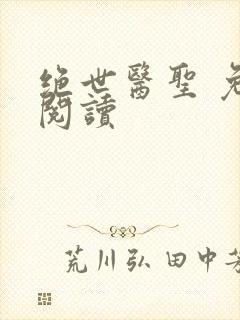 絕世醫聖
閱讀
荒川弘 田中